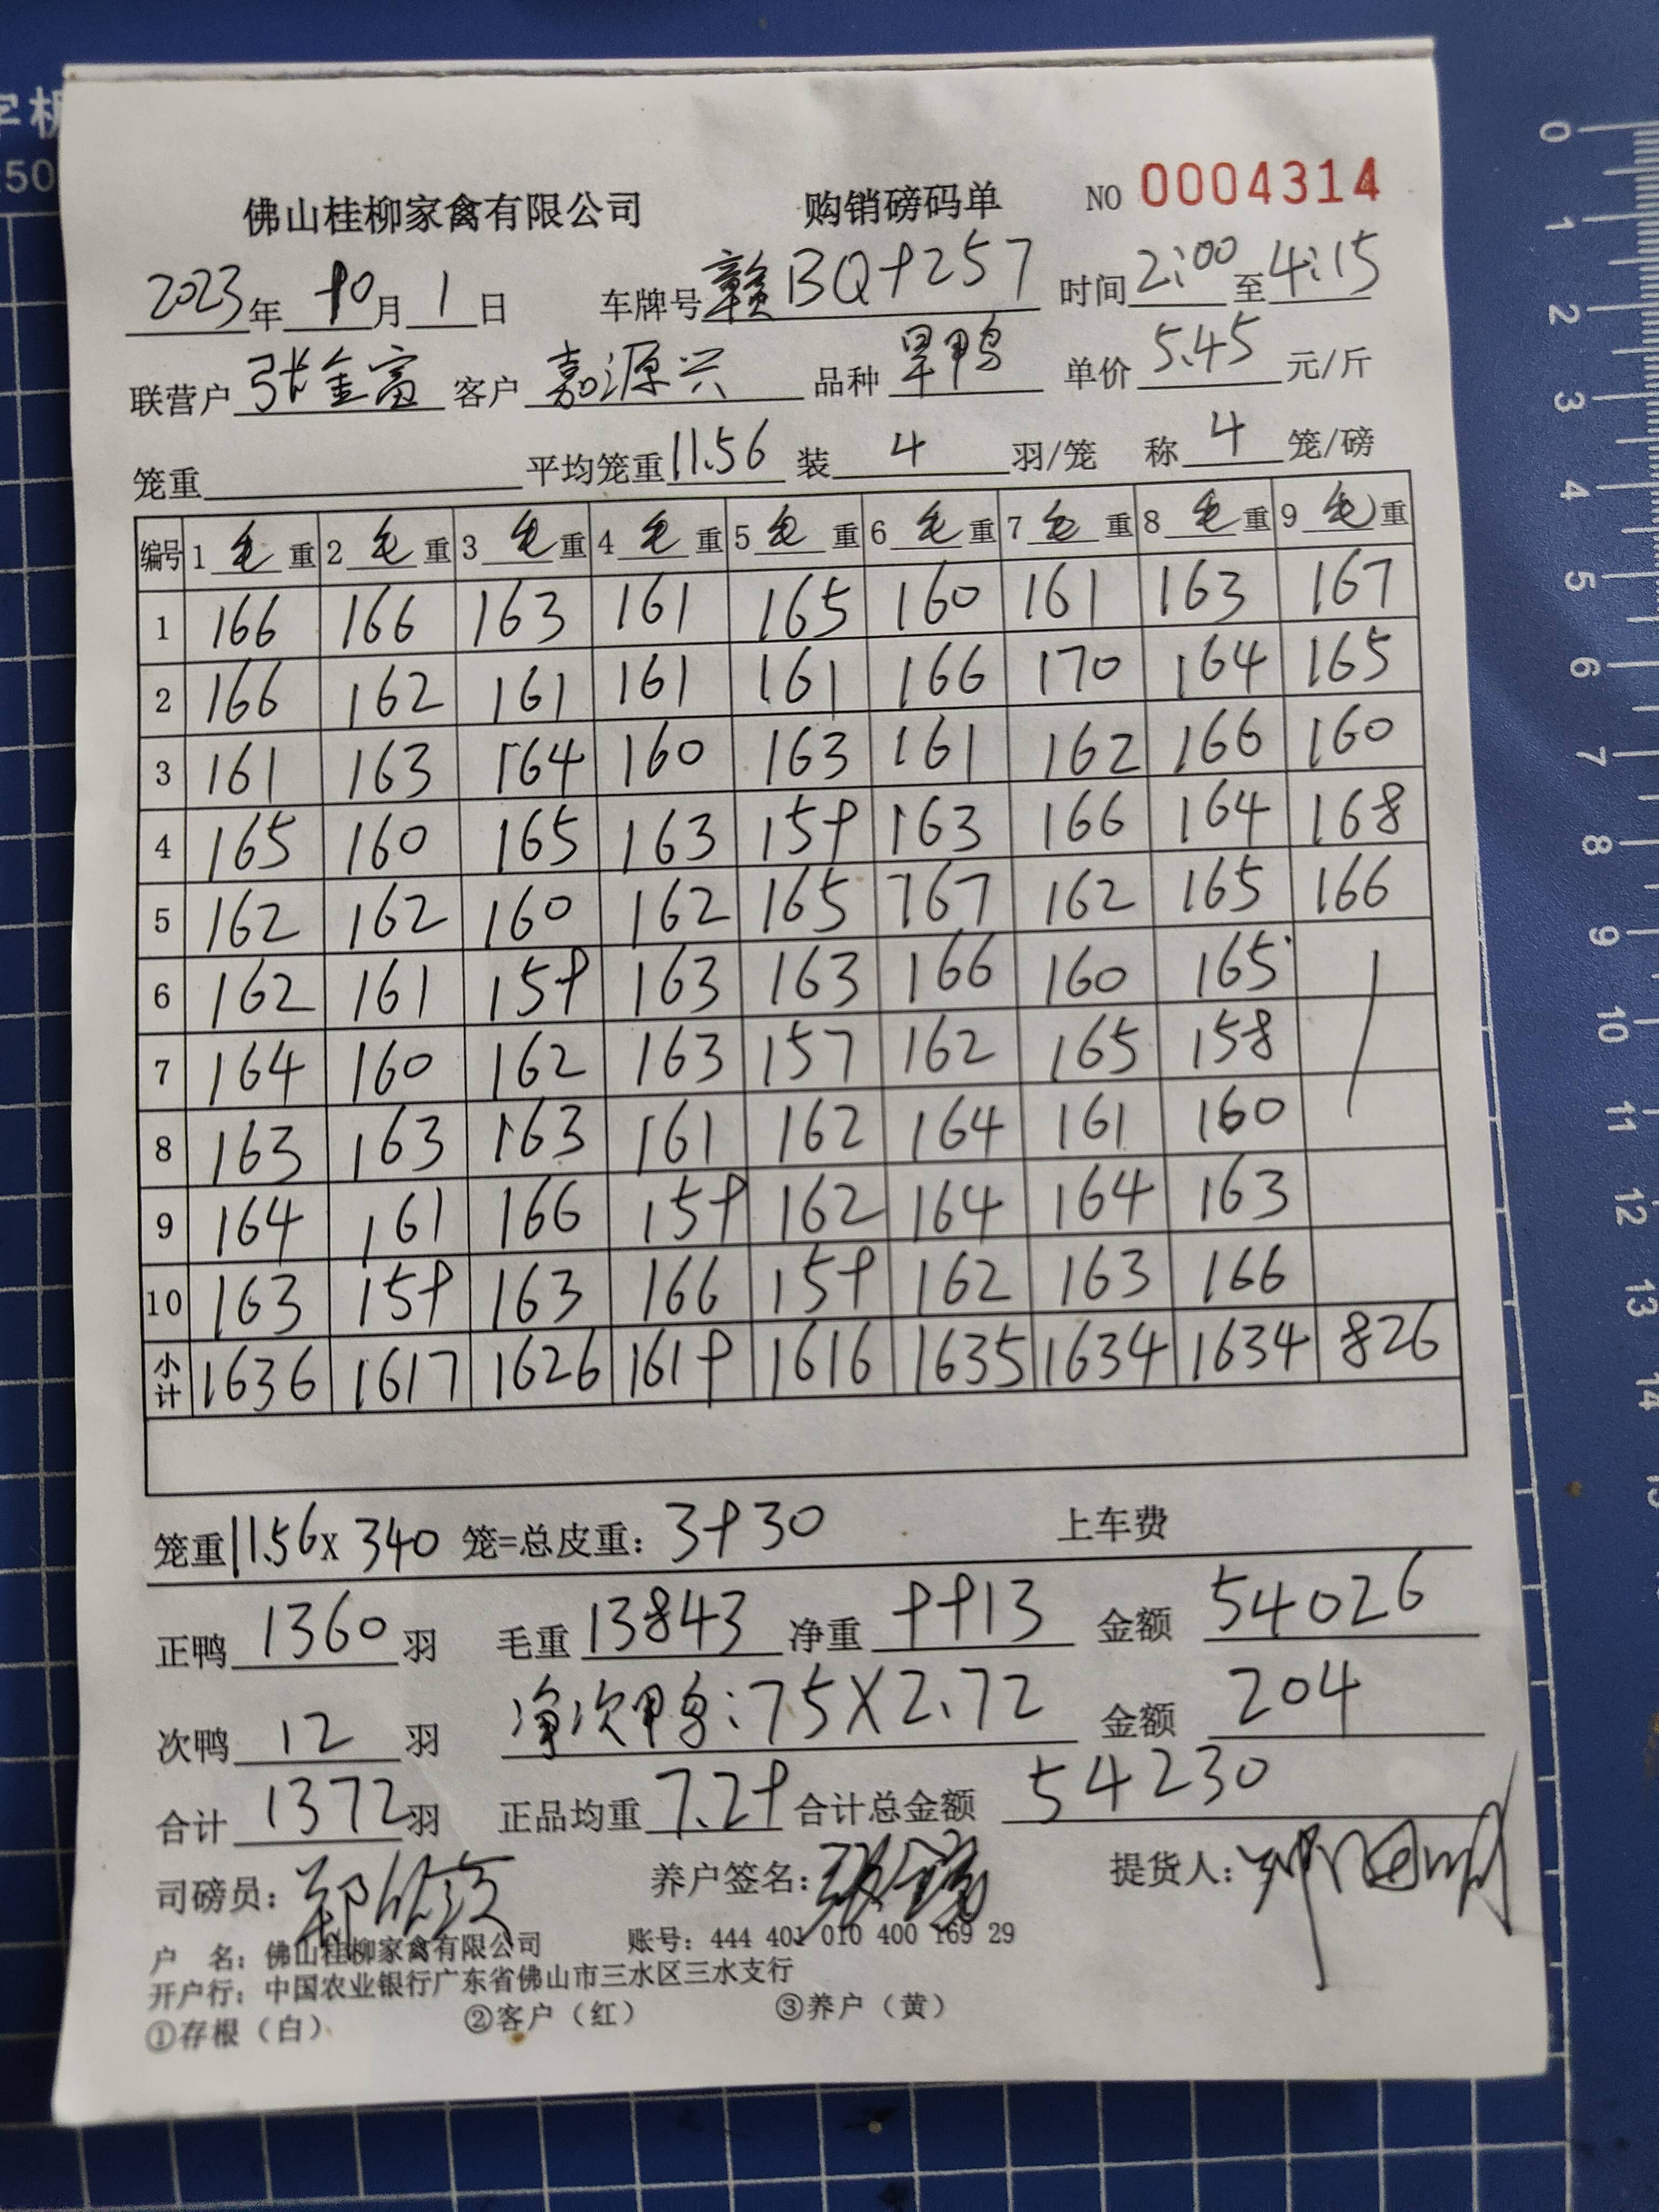 字板
250
佛山桂柳家禽有限公司 购销磅码单 NO 0004314
2023年 10月 1日 车牌号 赣BQ9257 时间 2:00 至 4:15
联营户 张金富 客户 嘉源兴 品种 旱鸭 单价 5.45 元/斤
笼重 平均笼重 11.56 装 4 羽/笼 称 4 笼/磅
编号 1 毛 重 2 毛 重 3 毛 重 4 毛 重 5 毛 重 6 毛 重 7 毛 重 8 毛 重 9 毛 重
1 166 166 163 161 165 160 161 163 167
2 166 162 161 161 161 166 170 164 165
3 161 163 164 160 163 161 162 166 160
4 165 160 165 163 159 163 166 164 168
5 162 162 160 162 165 167 162 165 166
6 162 161 159 163 163 166 160 165
7 164 160 162 163 157 162 165 158
8 163 163 163 161 162 164 161 160
9 164 161 166 159 162 164 164 163
10 163 159 163 166 159 162 163 166
小计 1636 1617 1626 1619 1616 1635 1634 1634 826
笼重 11.56 x 340 笼=总皮重: 3930 上车费
正鸭 1360 羽 毛重 13843 净重 9913 金额 54026
次鸭 12 羽 净次鸭:75X2.72 金额 204
合计 1372 羽 正品均重 7.29 合计总金额 54230
司磅员: 养户签名: 提货人:
户 名: 佛山桂柳家禽有限公司 账号: 444 401 010 400 169 29
开户行: 中国农业银行广东省佛山市三水区三水支行
①存根(白) ②客户(红) ③养户(黄)
0
1
2
3
4
5
6
7
8
9
10
11
12
13
14
15